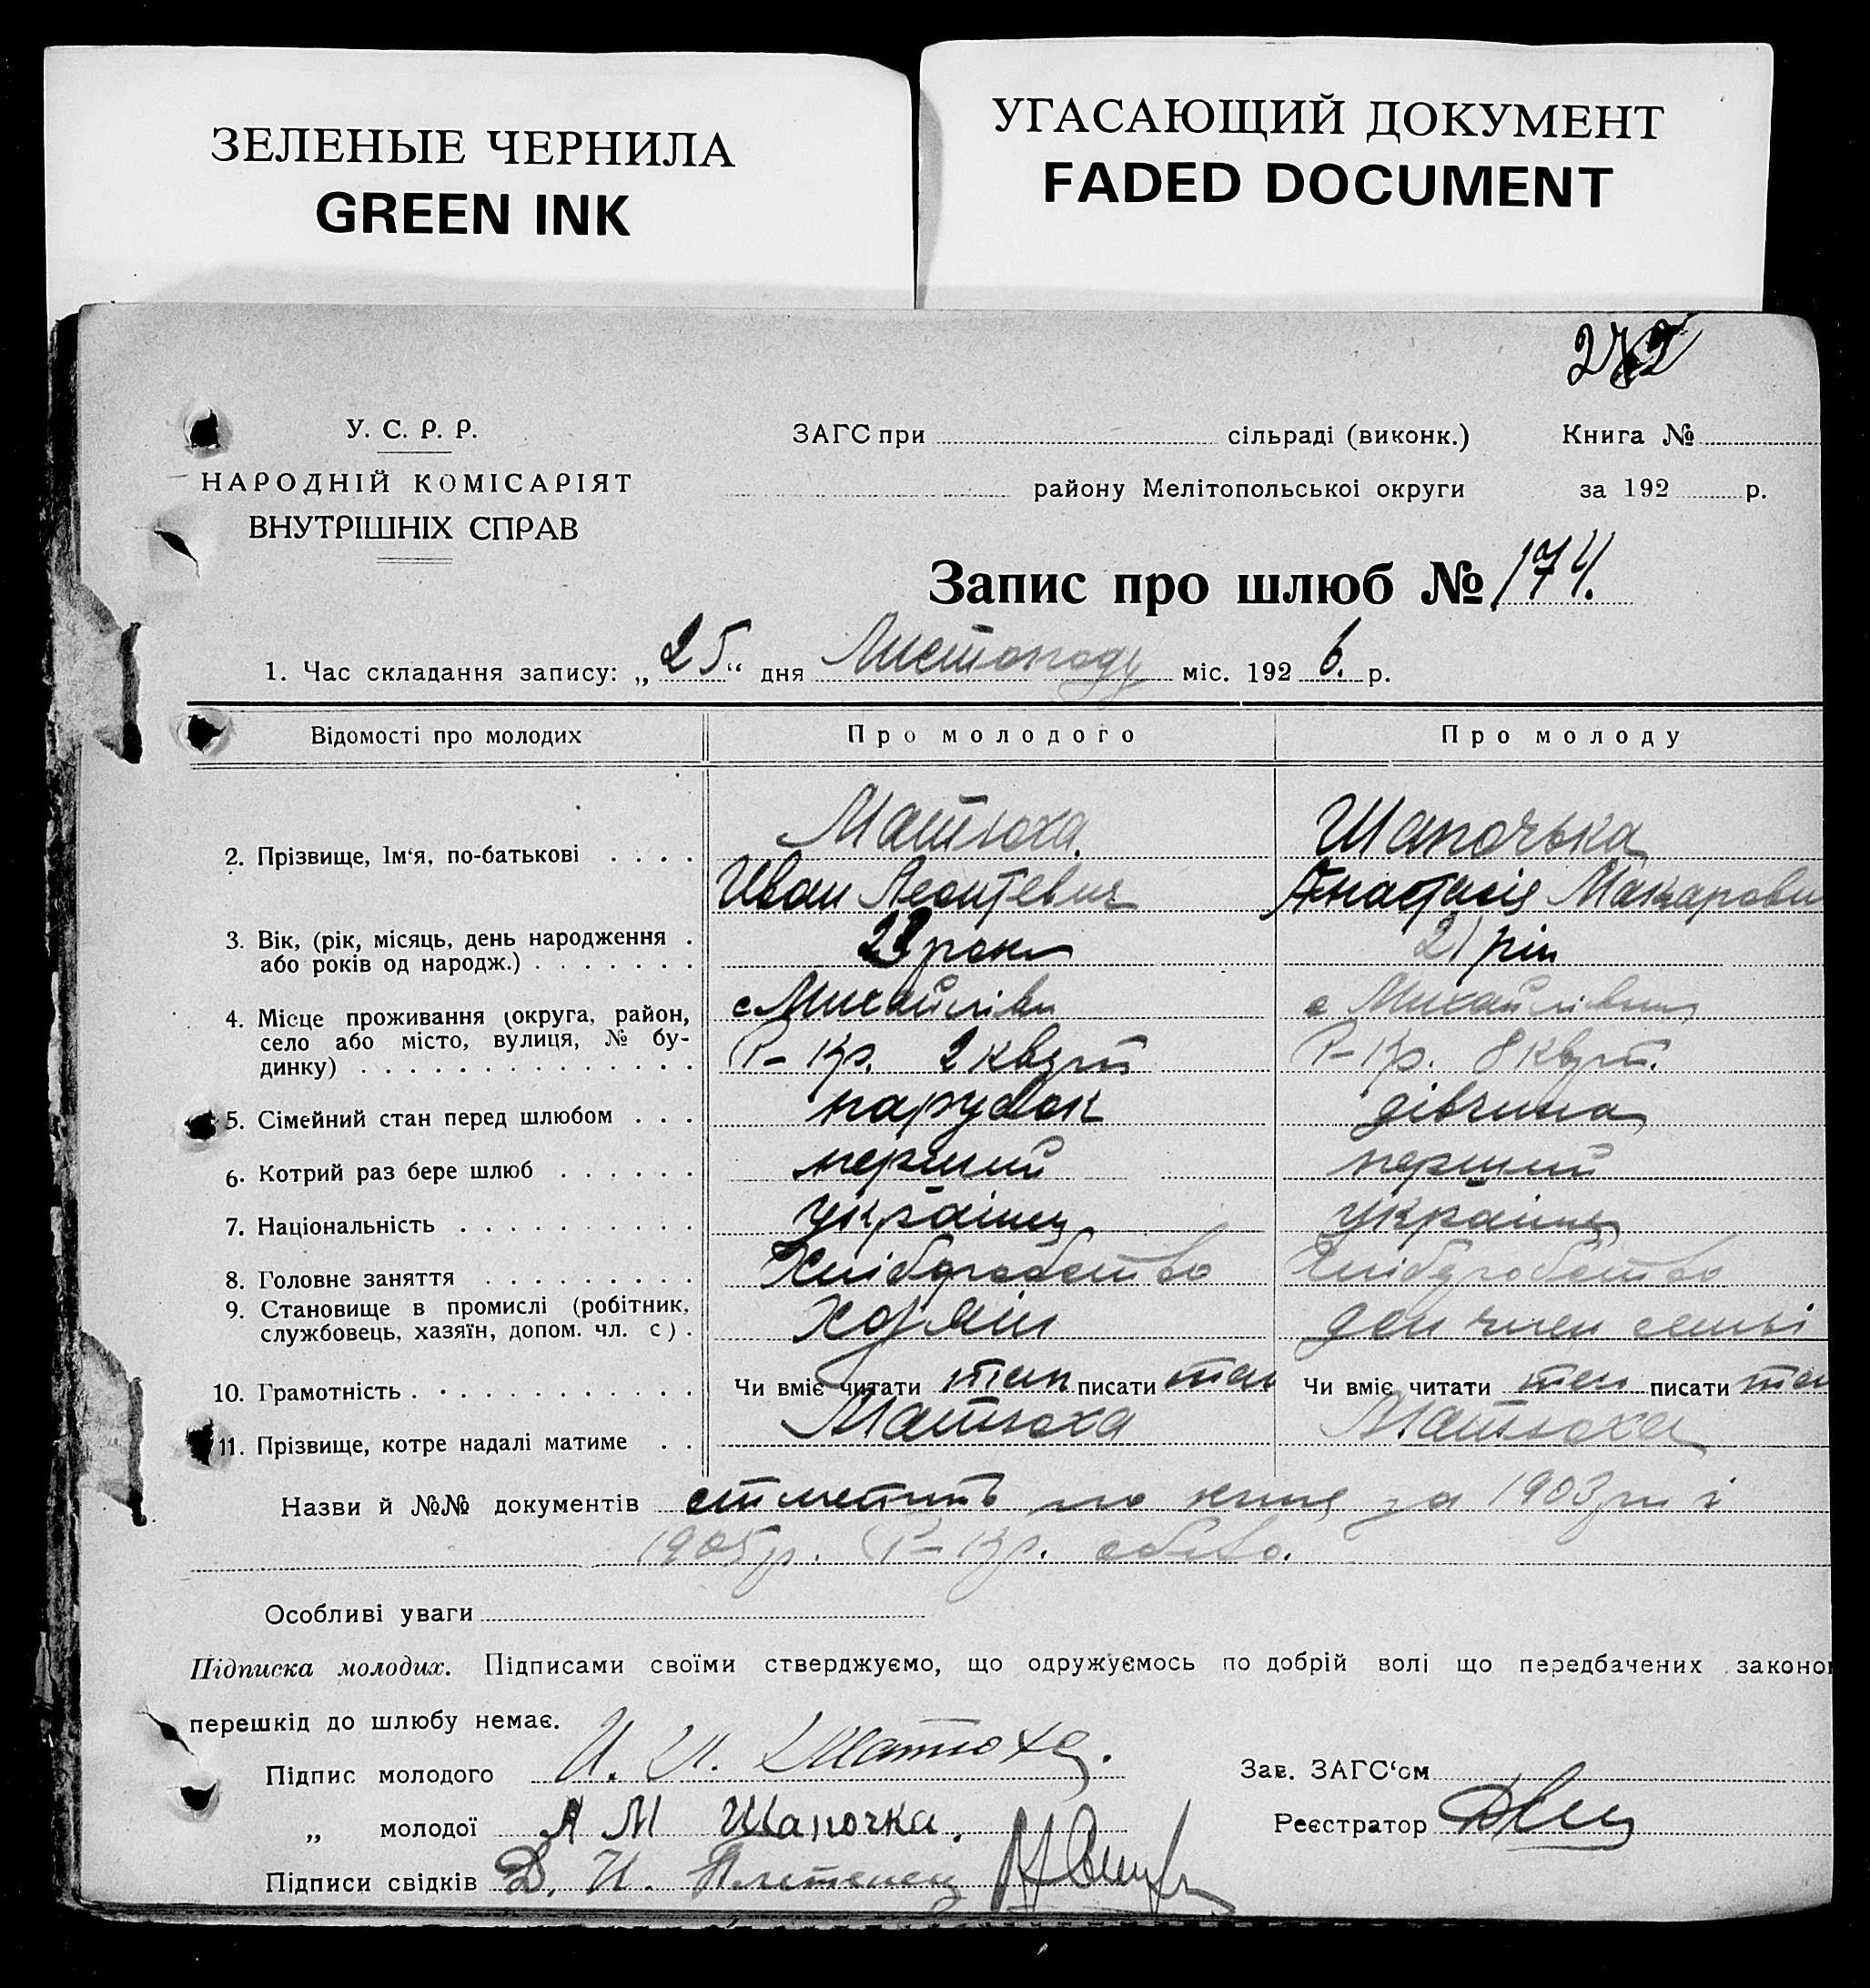 ЗЕЛЕНЫЕ ЧЕРНИЛА
GREEN INK
УГАСАЮЩИЙ ДОКУМЕНТ
FADED DOCUMENT
У. С. Р. Р.
НАРОДНІЙ КОМІСАРІЯТ
ВНУТРІШНІХ СПРАВ
ЗАГС при сільраді (виконк.) Книга №
району Мелітопольської округи за 192 р.
Запис про шлюб № 174.
1. Час складання запису: „25“ дня Листопаду міс. 1926. р.
Відомості про молодих Про молодого Про молоду
2. Прізвище, Ім‘я, по-батькові . . . . Матюха Шапочька
Иван Леонтевич Анастасія Макарови
3. Вік, (рік, місяць, день народження . роки 21 рік
або років од народж.) . . . . . . .
4. Місце проживання (округа, район, с Михайлівки с Михайлівки
село або місто, вулиця, № бу- Р-Кр. 2 кварт Р-Кр. 8 кварт.
динку) . . . . . . . . . . . . . .
5. Сімейний стан перед шлюбом . . . парубок дівчина
6. Котрий раз бере шлюб . . . . . . перший перший
7. Національність . . . . . . . . . . українец українц
8. Головне заняття . . . . . . . . . Хліборобство Хліборобство
9. Становище в промислі (робітник, доп член семьі
службовець, хазяїн, допом. чл. с) .
10. Грамотність . . . . . . . . . . . . Чи вміє читати так писати так Чи вміє читати так писати так
11. Прізвище, котре надалі матиме . . Матюха Матюха
Назви й №№ документів по книз за 1903 рік і
1905 р. Р-Кр.
Особливі уваги
Підписка молодих. Підписами своїми стверджуємо, що одружуємось по добрій волі що передбачених законо
перешкід до шлюбу немає.
Підпис молодого Матюха.
Зав. ЗАГС‘ом
„ молодої А М Шапочка.
Реєстратор
Підписи свідків Д. И.